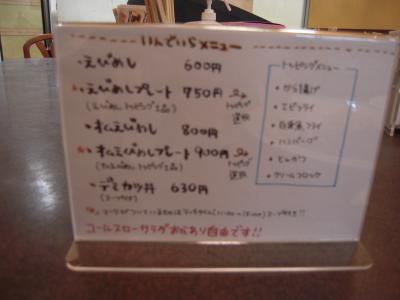 いんでいらメニュー
・えびめし 600円
・えびめしプレート 750円
(えびめし、トッピング1品)
トッピング選択
・オムえびめし 800円
・オムえびめしプレート 900円
(オムえびめし、トッピング1品)
トッピング選択
・デミカツ丼 630円
(スープ付き)
コールスローサラダおかわり自由です!!
トッピングメニュー
・から揚げ
・エビフライ
・白身魚フライ
・ハンバーグ
・とんかつ
・クリームコロッケ